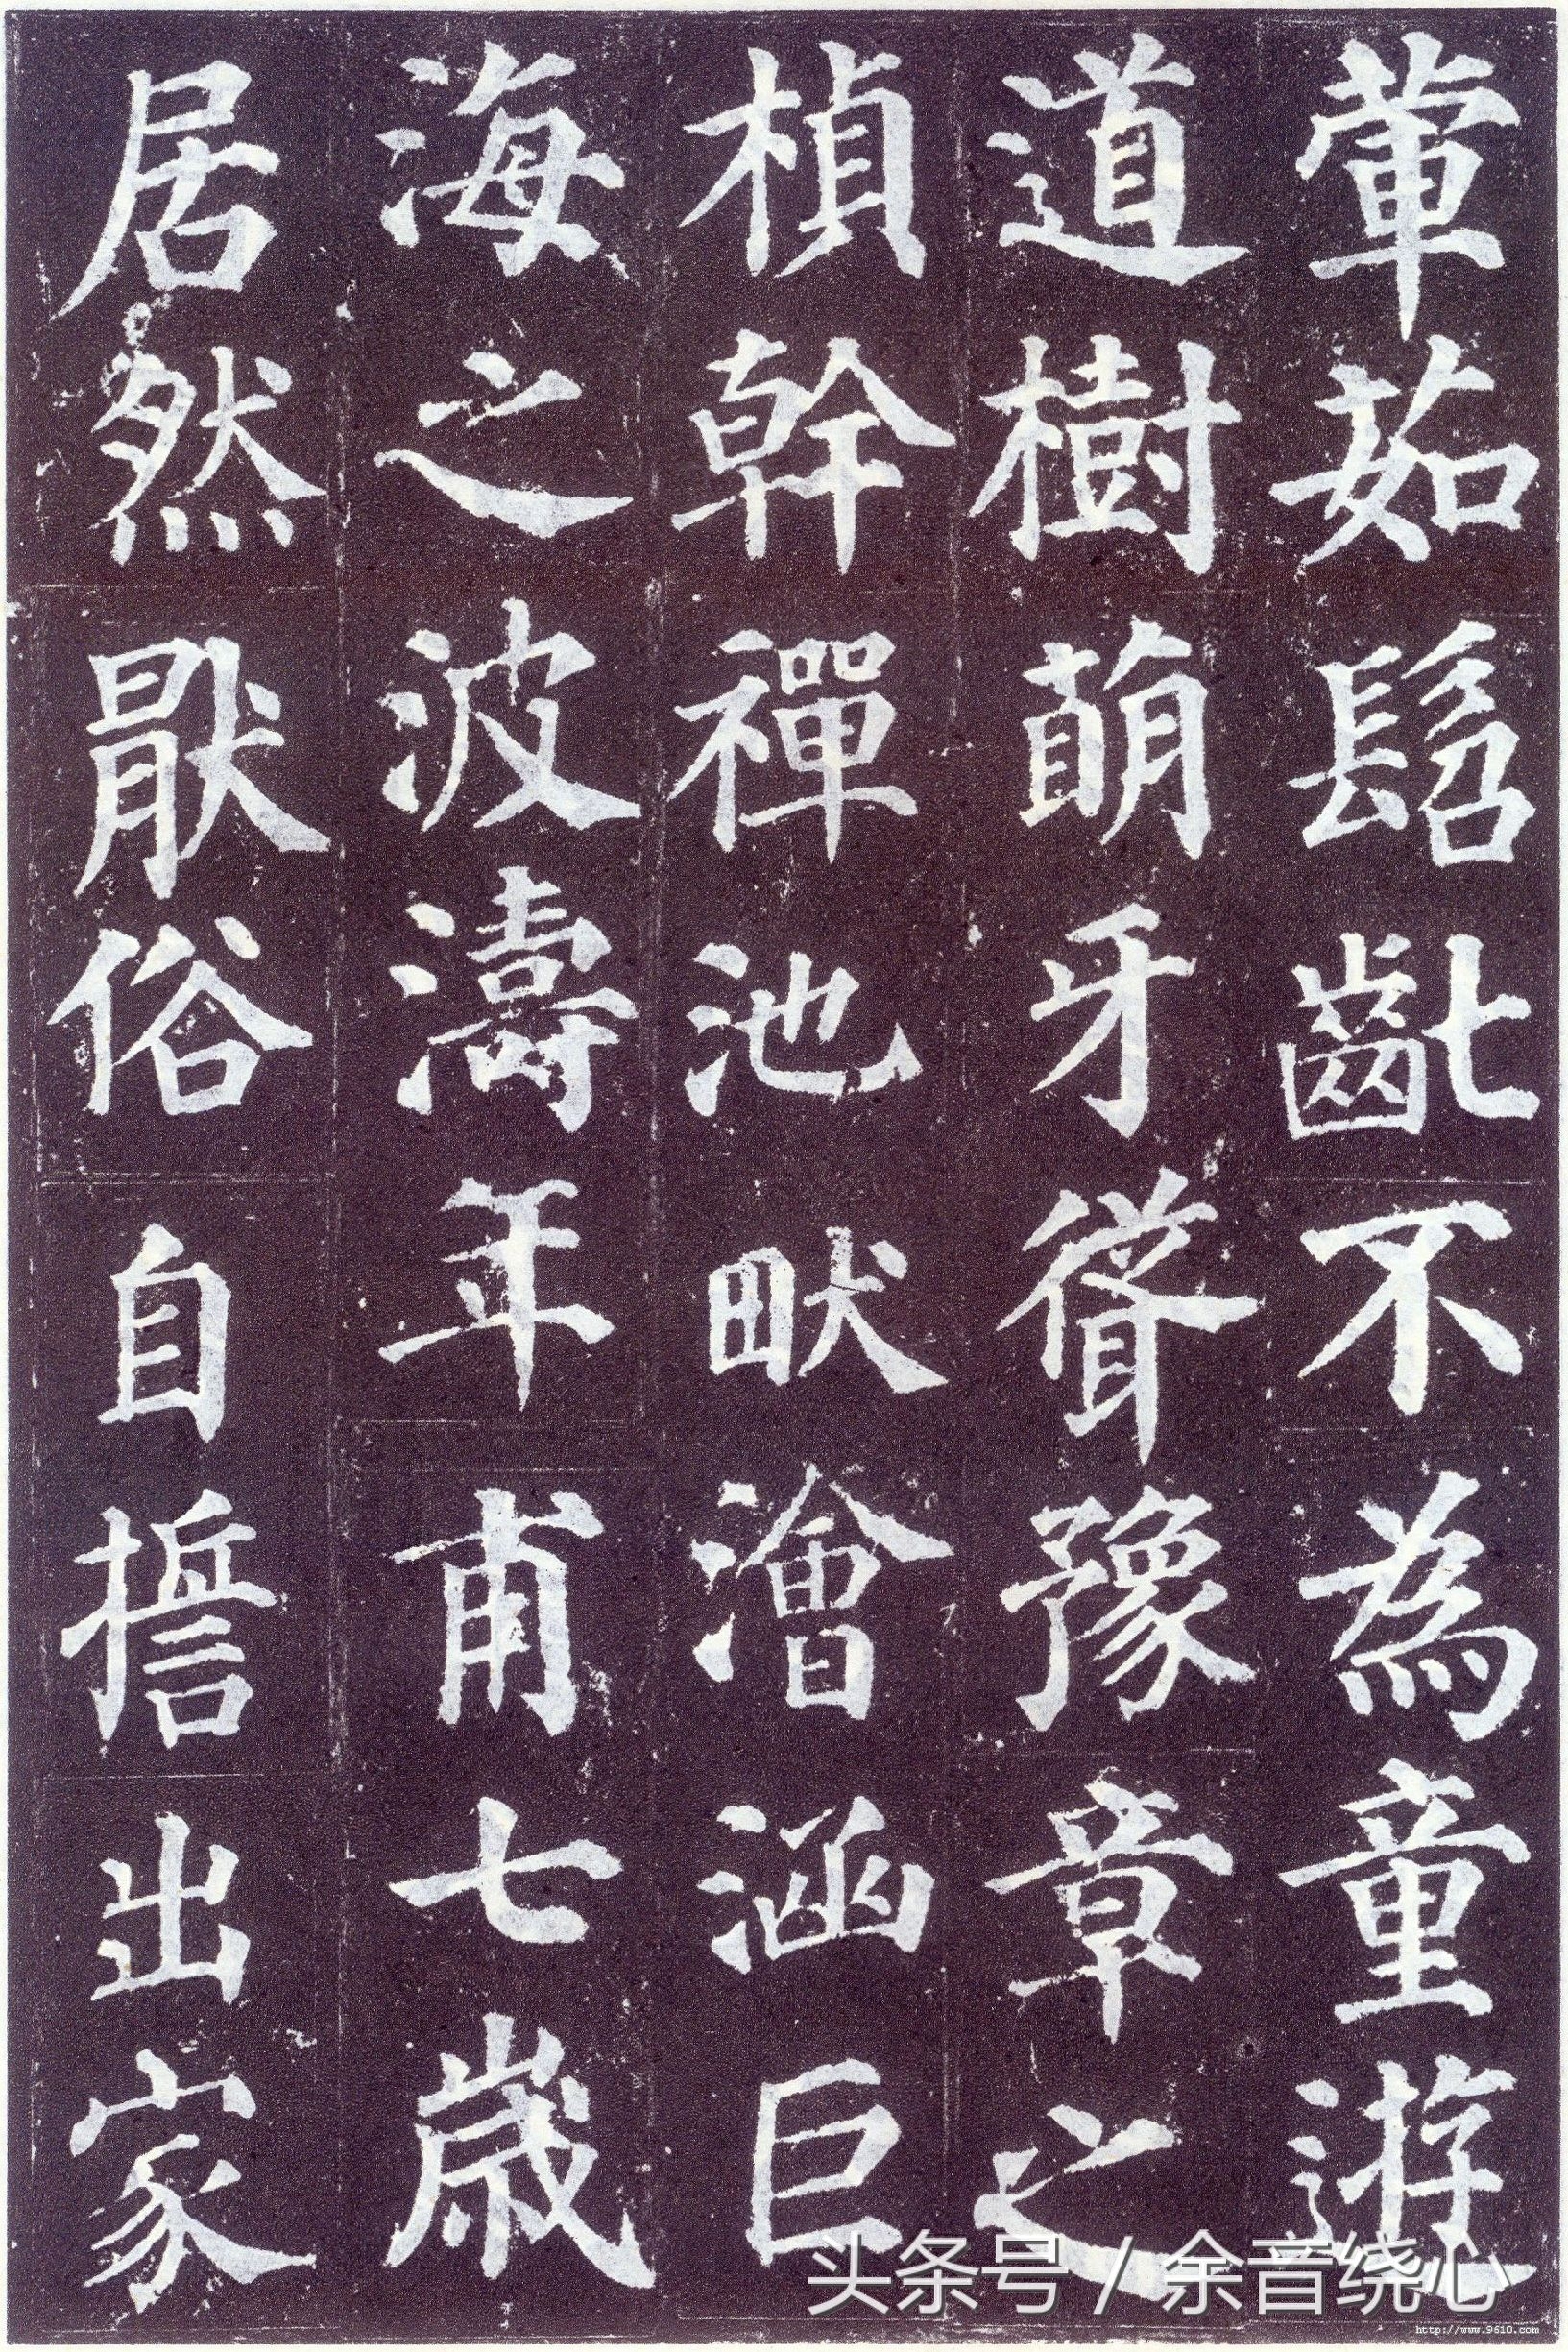 葷茹髫齔不為童遊
道樹萌牙聳豫章之
楨幹禪池畎澮涵巨
海之波濤年甫七歲
居然猒俗自誓出家
头条号 / 余音绕心
http://www.9610.com